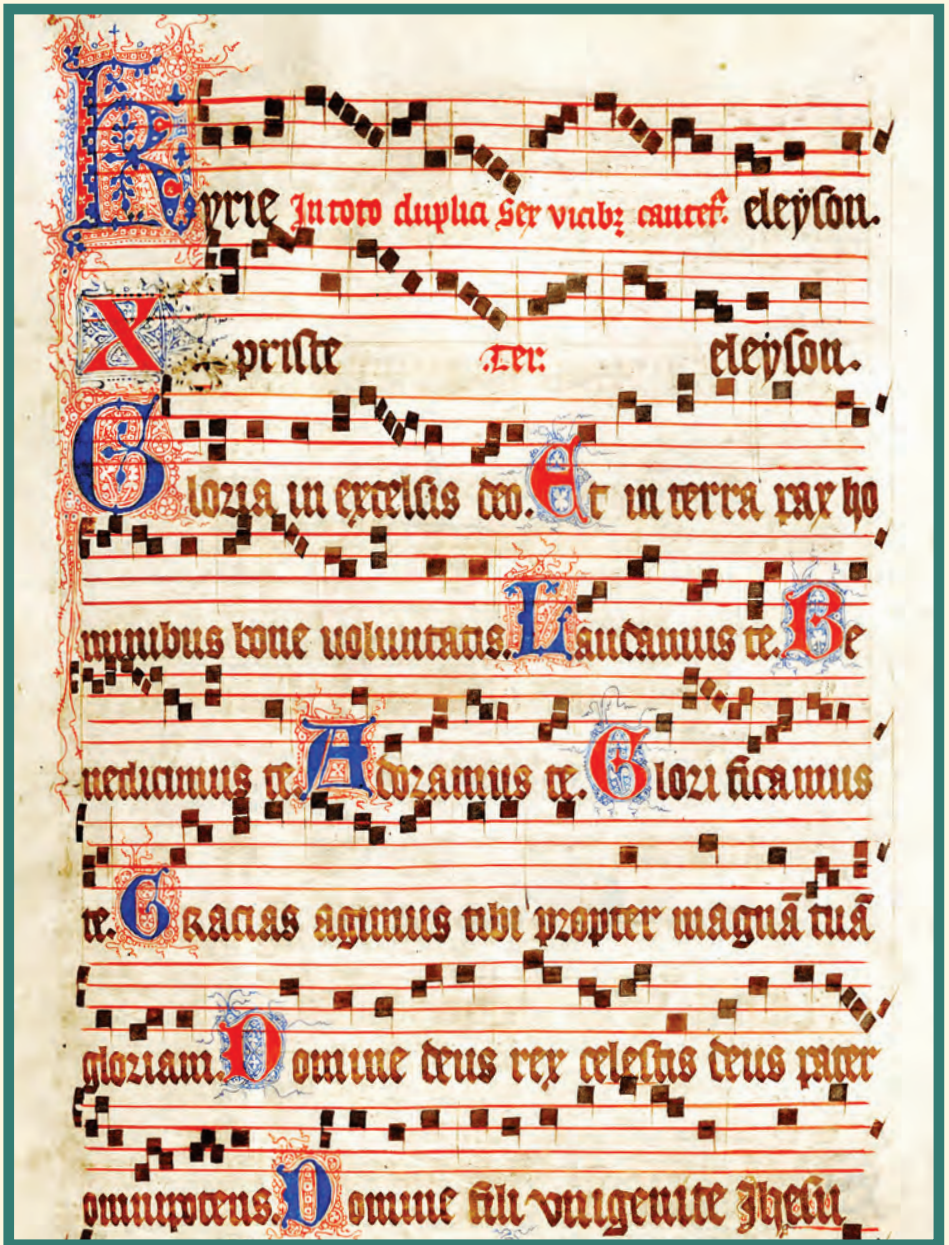 Kyrie In toto duplici Sex vicibꝫ cantet᷑. eleyson.
Xpriste .Ter. eleyson.
Gloria in excelsis deo. Et in terra pax ho
minibus bone uoluntatis. Laudamus te. Be
nedicimus te. Adoramus te. Glori ficamus
te. Gracias agimus tibi propter magnā tuā
gloriam. Domine deus rex celestis deus pater
omnipotens. Domine fili vnigenite Jhesu